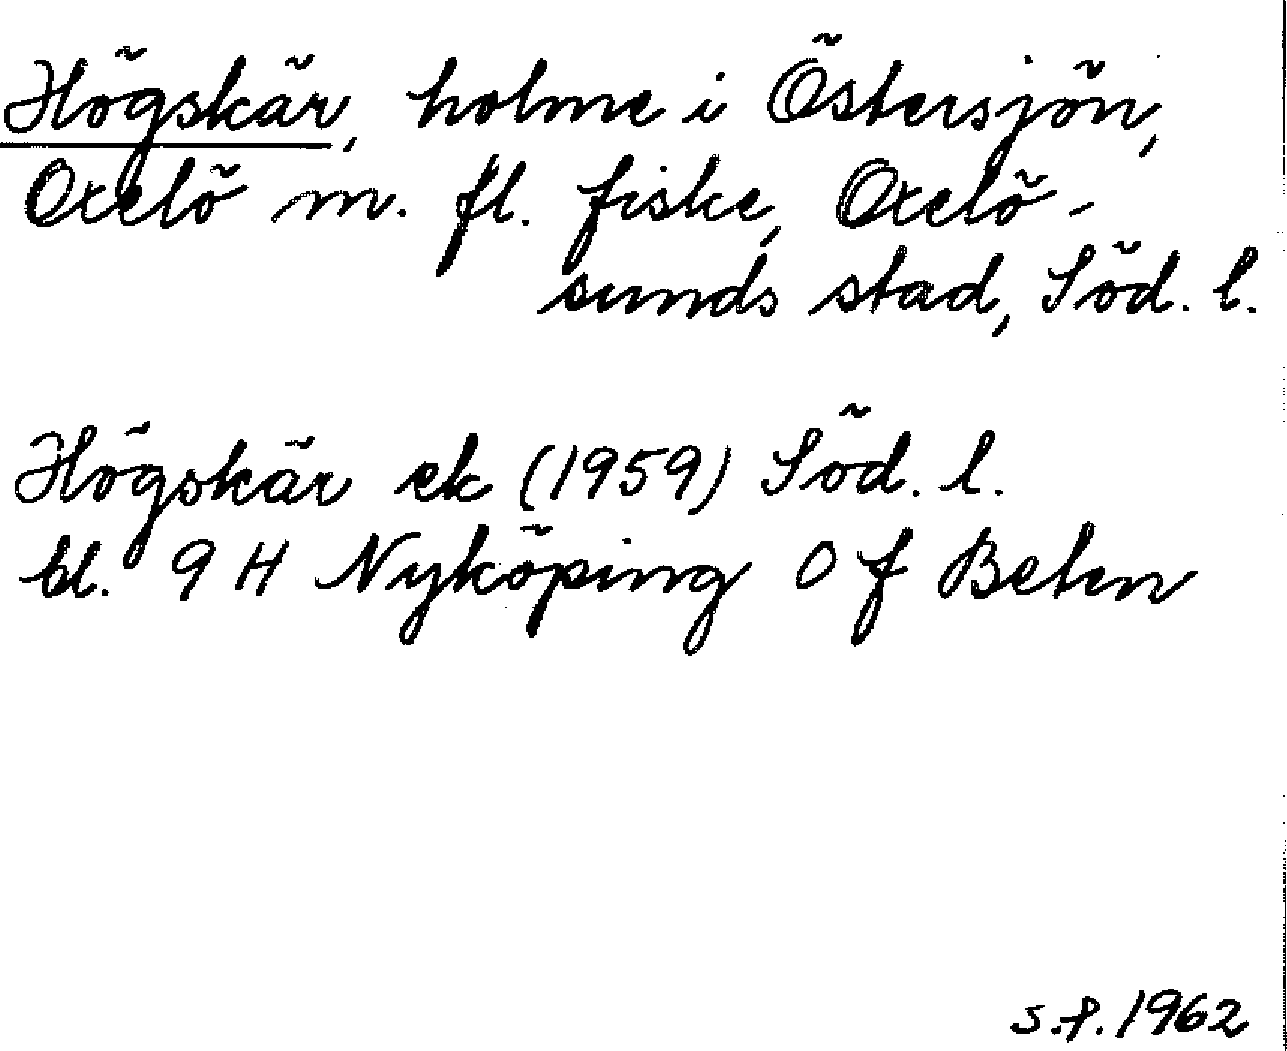 Högskär, holme i Östersjön,
Oxelö m. fl. fiske, Oxelö-
sunds stad, Söd. l.
Högskär ek (1959) Söd. l.
bl. 9 H Nyköping 0 f Beten
s.f. 1962